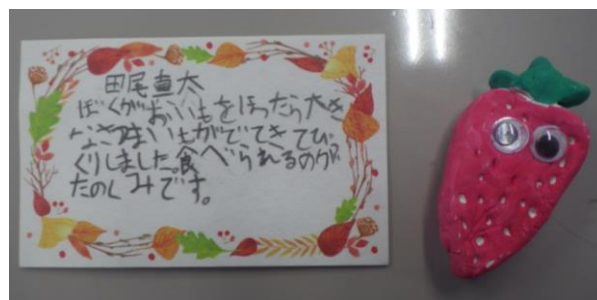 田尾直太
ぼくがおいもをほったら大き
なさつまいもがでてきてび
くりしました。食べられるのが
たのしみです。